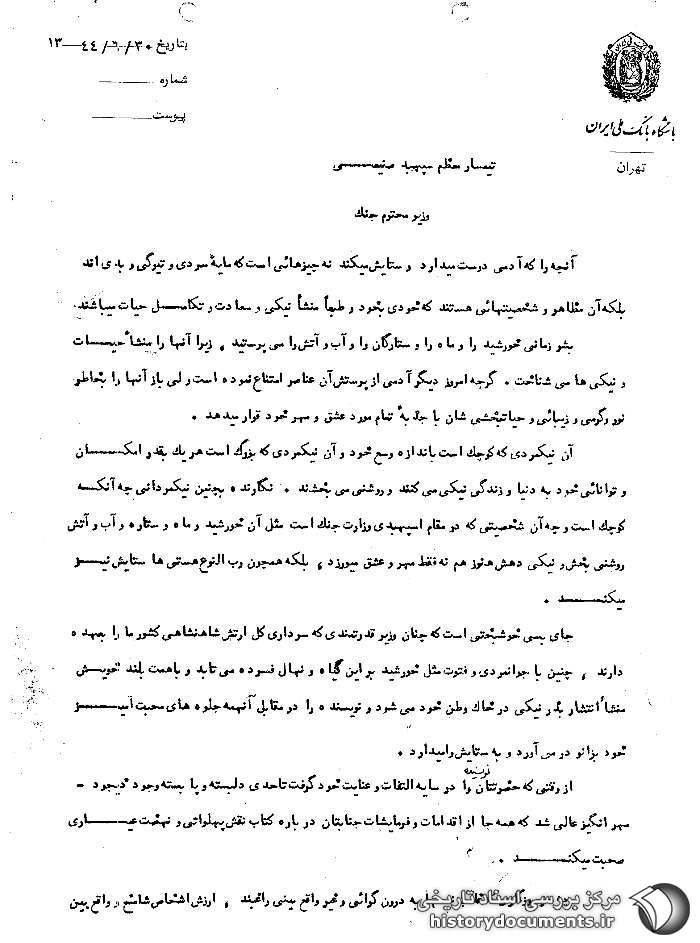 بتاریخ ۳۰/۶/۴۴ـــ۱۳
شماره
پیوست
باشگاه بانک ملی ایران
تهران
تیمسار معظم سپهبد صنیعـــی
وزیر محترم جنگ
آنچه را که آدمی دوست میدارد و ستایش میکند نه چیزهائی است که مایهٔ سردی و تیرگی و بدی اند
بلکه آن مظاهر و شخصیتهائی هستند که خودی بخود و طبعاً منشأ نیکی و سعادت و تکامـل حیات میباشند.
بشر زمانی خورشید را و ماه را و ستارگان را و آب و آتش را می پرستید ، زیرا آنها را منشأ حیـــات
و نیکی ها می شناخت . گرچه امروز دیگر آدمی از پرستش آن عناصر امتناع نموده است ولی باز آنها را بخاطر
نور و گرمی و زیبائی و حیاتبخشی شان با جذبهٔ تمام مورد عشق و مهر خود قرار میدهد .
آن نیکمردی که کوچک است باندازه وسع خود و آن نیکمردی که بزرگ است هر یک بقدر امکـــان
و توانائی خود به دنیا و زندگی نیکی می کنند و روشنی می بخشند . نگارنده بچنین نیکمردانی چه آنکـــه
کوچک است و چه آن شخصیتی که در مقام اسپهبدی وزارت جنگ است مثل آن خورشید و ماه و ستاره و آب و آتش
روشنی بخش و نیکی دهش هنوز هم نه فقط مهر و عشق میورزد ، بلکه همچون رب النوع هستی ها ستایش نیـــز
میکنـــد .
جای بسی خوشبختی است که چنان وزیر قدرتمندی که سرداری کل ارتش شاهنشاهی کشور ما را بعهده
دارند ، چنین با جوانمردی و فتوت مثل خورشید بر این گیاه و نهال فسرده می تابد و باهمت بلند خویـــش
منشأ انتشار بذر نیکی در خاک وطن خود می شود و نویسنده را در مقابل آنهمه جلوه های محبت آمیـــز
خود بزانو در می آورد و به ستایش وامیدارد .
از وقتی که حضرتتان را در سایه التفات و عنایت خود گرفت تاحدی دلبسته و پا بسته وجود ذیجود -
مهر انگیز عالی شد که همه جا از اقدامات و فرمایشات جنابتان در باره کتاب نقش پهلوانی و نهضت عیـــاری
صحبت میکنـــد .
به درون گرائی و غیر واقع بینی راغبند ، ارزش اشخاص شاسع و واقع بین
مرکز بررسی اسناد تاریخی
historydocuments.ir